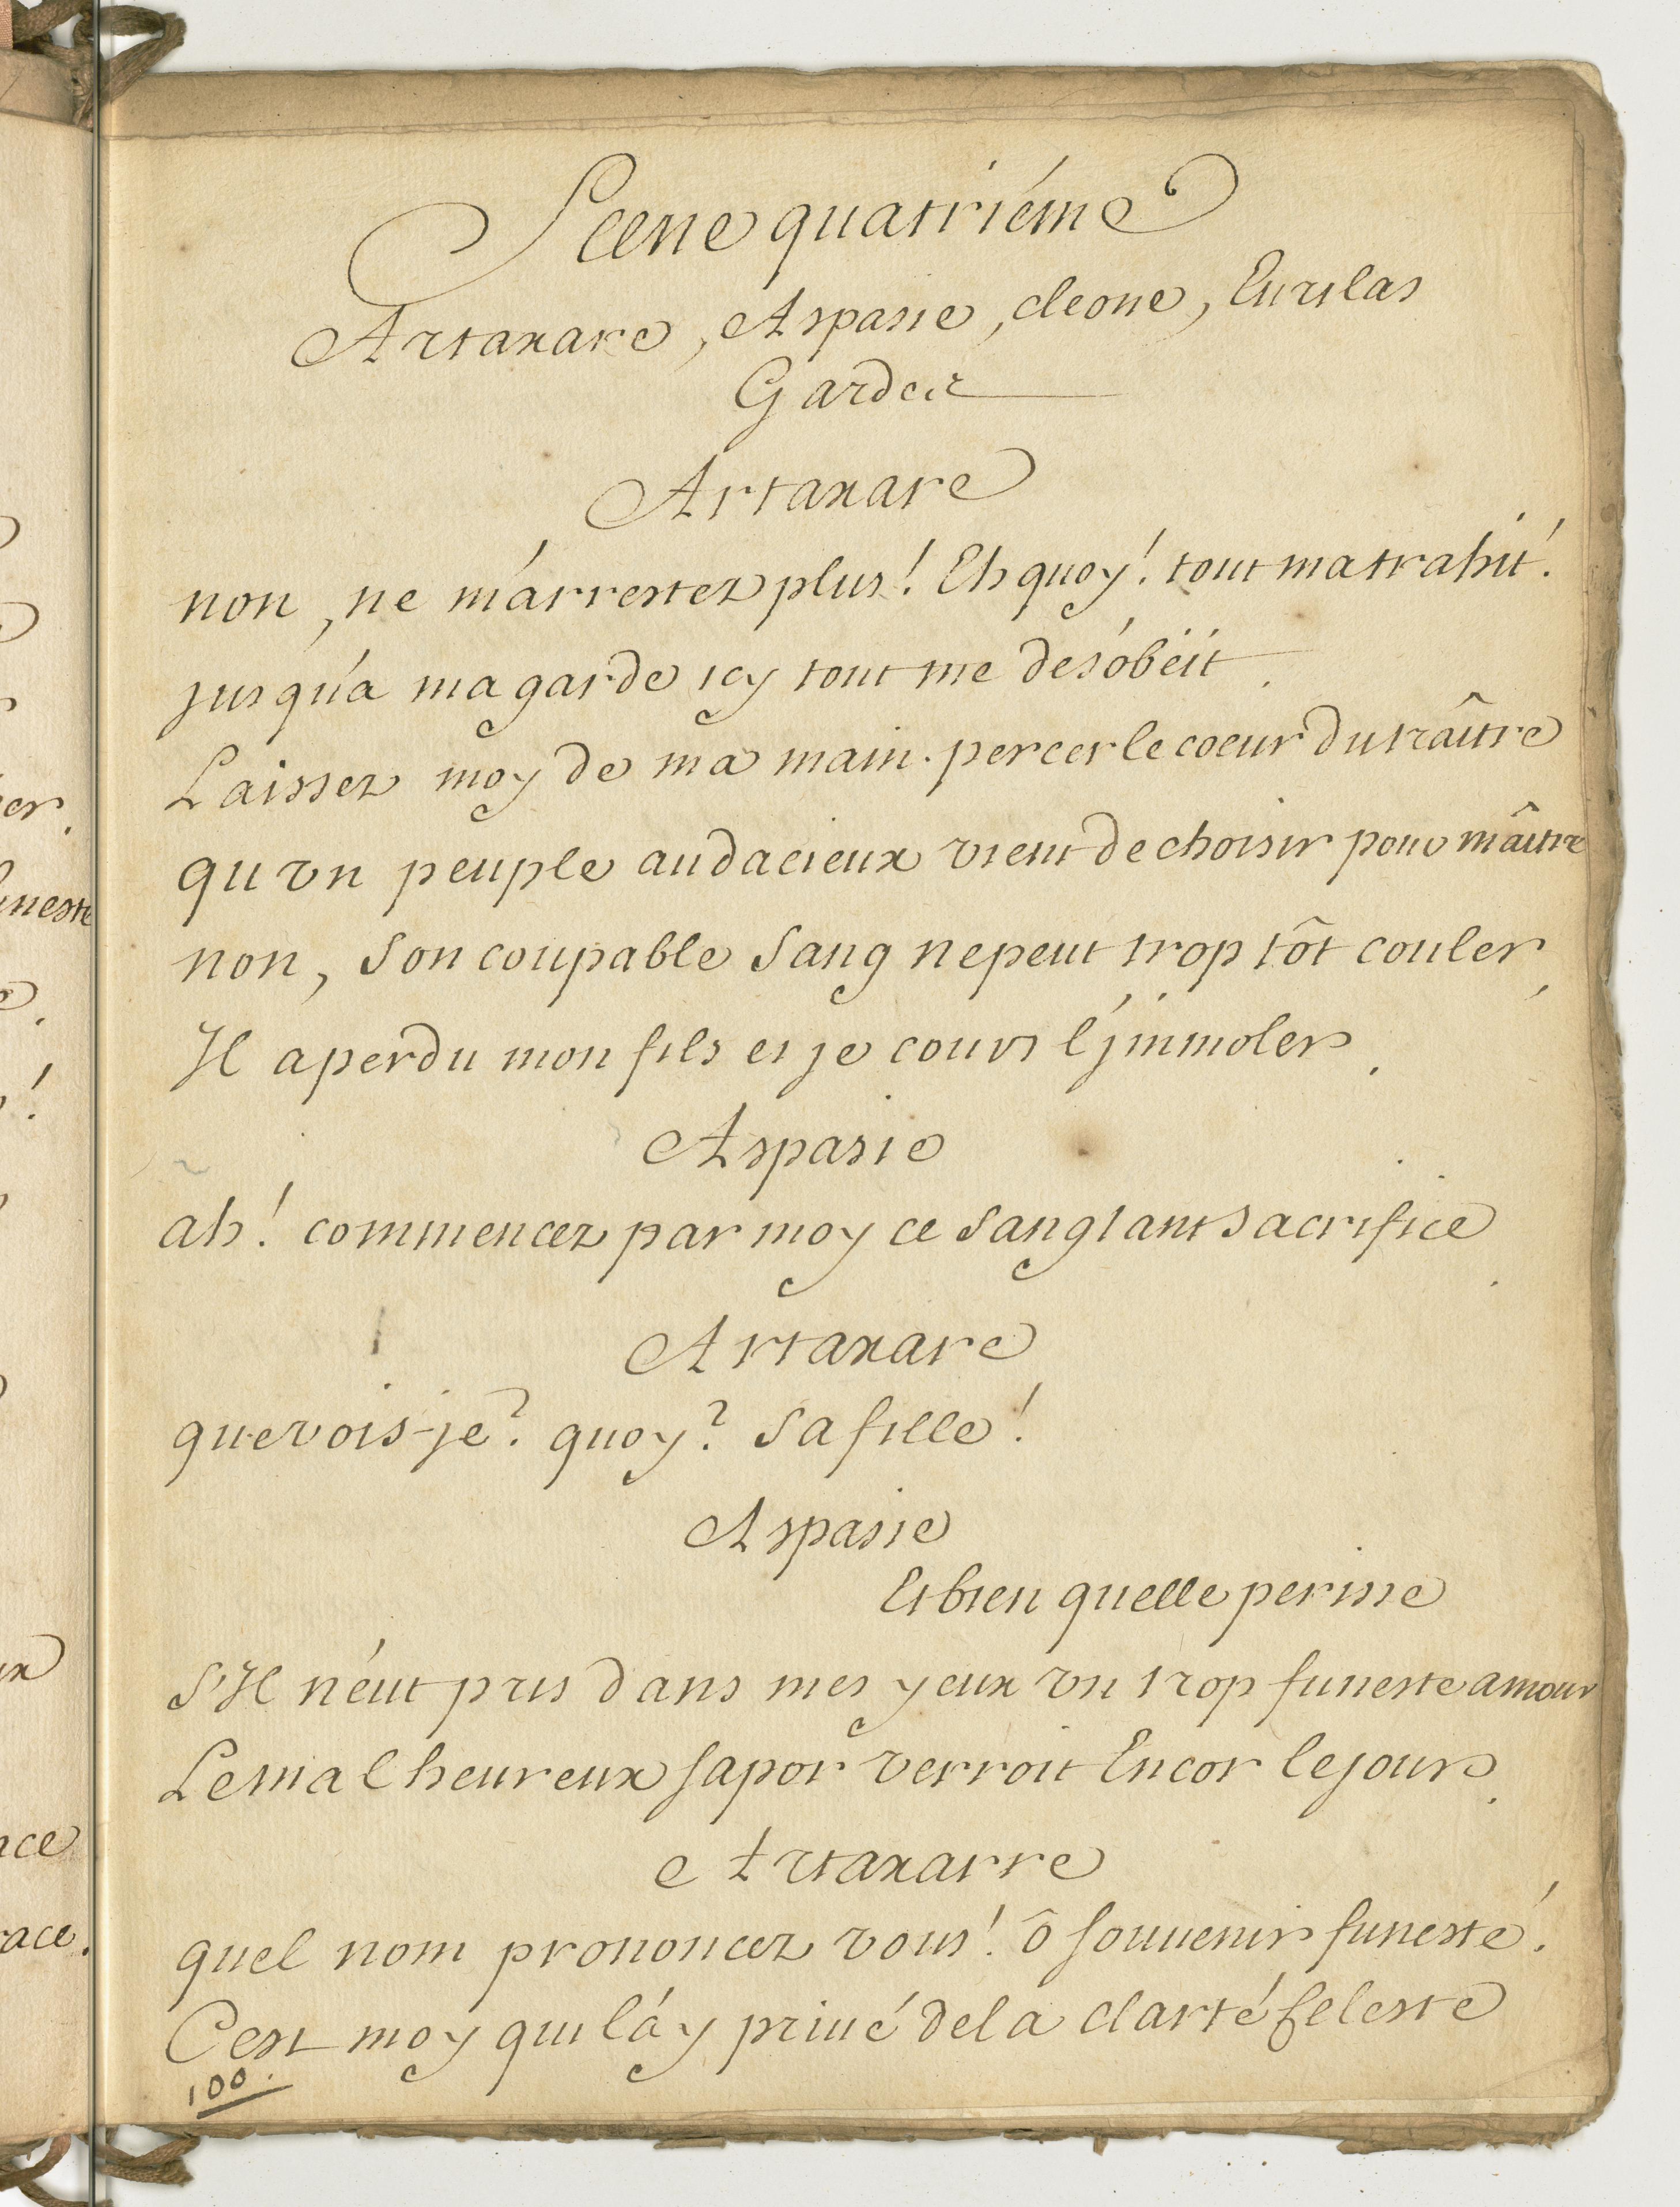 Scene quatriéme
Artaxare, Aspasie, cleone, Eurilas
Gardes
Artaxare
non, ne m'arrestez plus! Eh quoy! tout ma trahit!
jusqu'a ma garde icy tout me desobëit.
Laissez moy de ma main percer le coeur du traître
qu'vn peuple audacieux vient de choisir pour mâitre
non, son coupable sang ne peut trop tôt couler,
Il a perdu mon fils et je cours l'jmmoler.
Aspasie
ah! commencez par moy ce sanglant sacrifice.
Artaxare
que vois-je? quoy? sa fille!
Aspasie
Et bien quelle perisse
S'Il n'eut pris dans mes yeux vn trop funeste amour
Le malheureux sapor verroit Encor le jour.
Artaxarre
quel nom prononcez vous! ô souuenir funeste!
C'est moy qui l'ay priué de la clarté Celeste
100.
er.
neste
!
ux
ace
race.